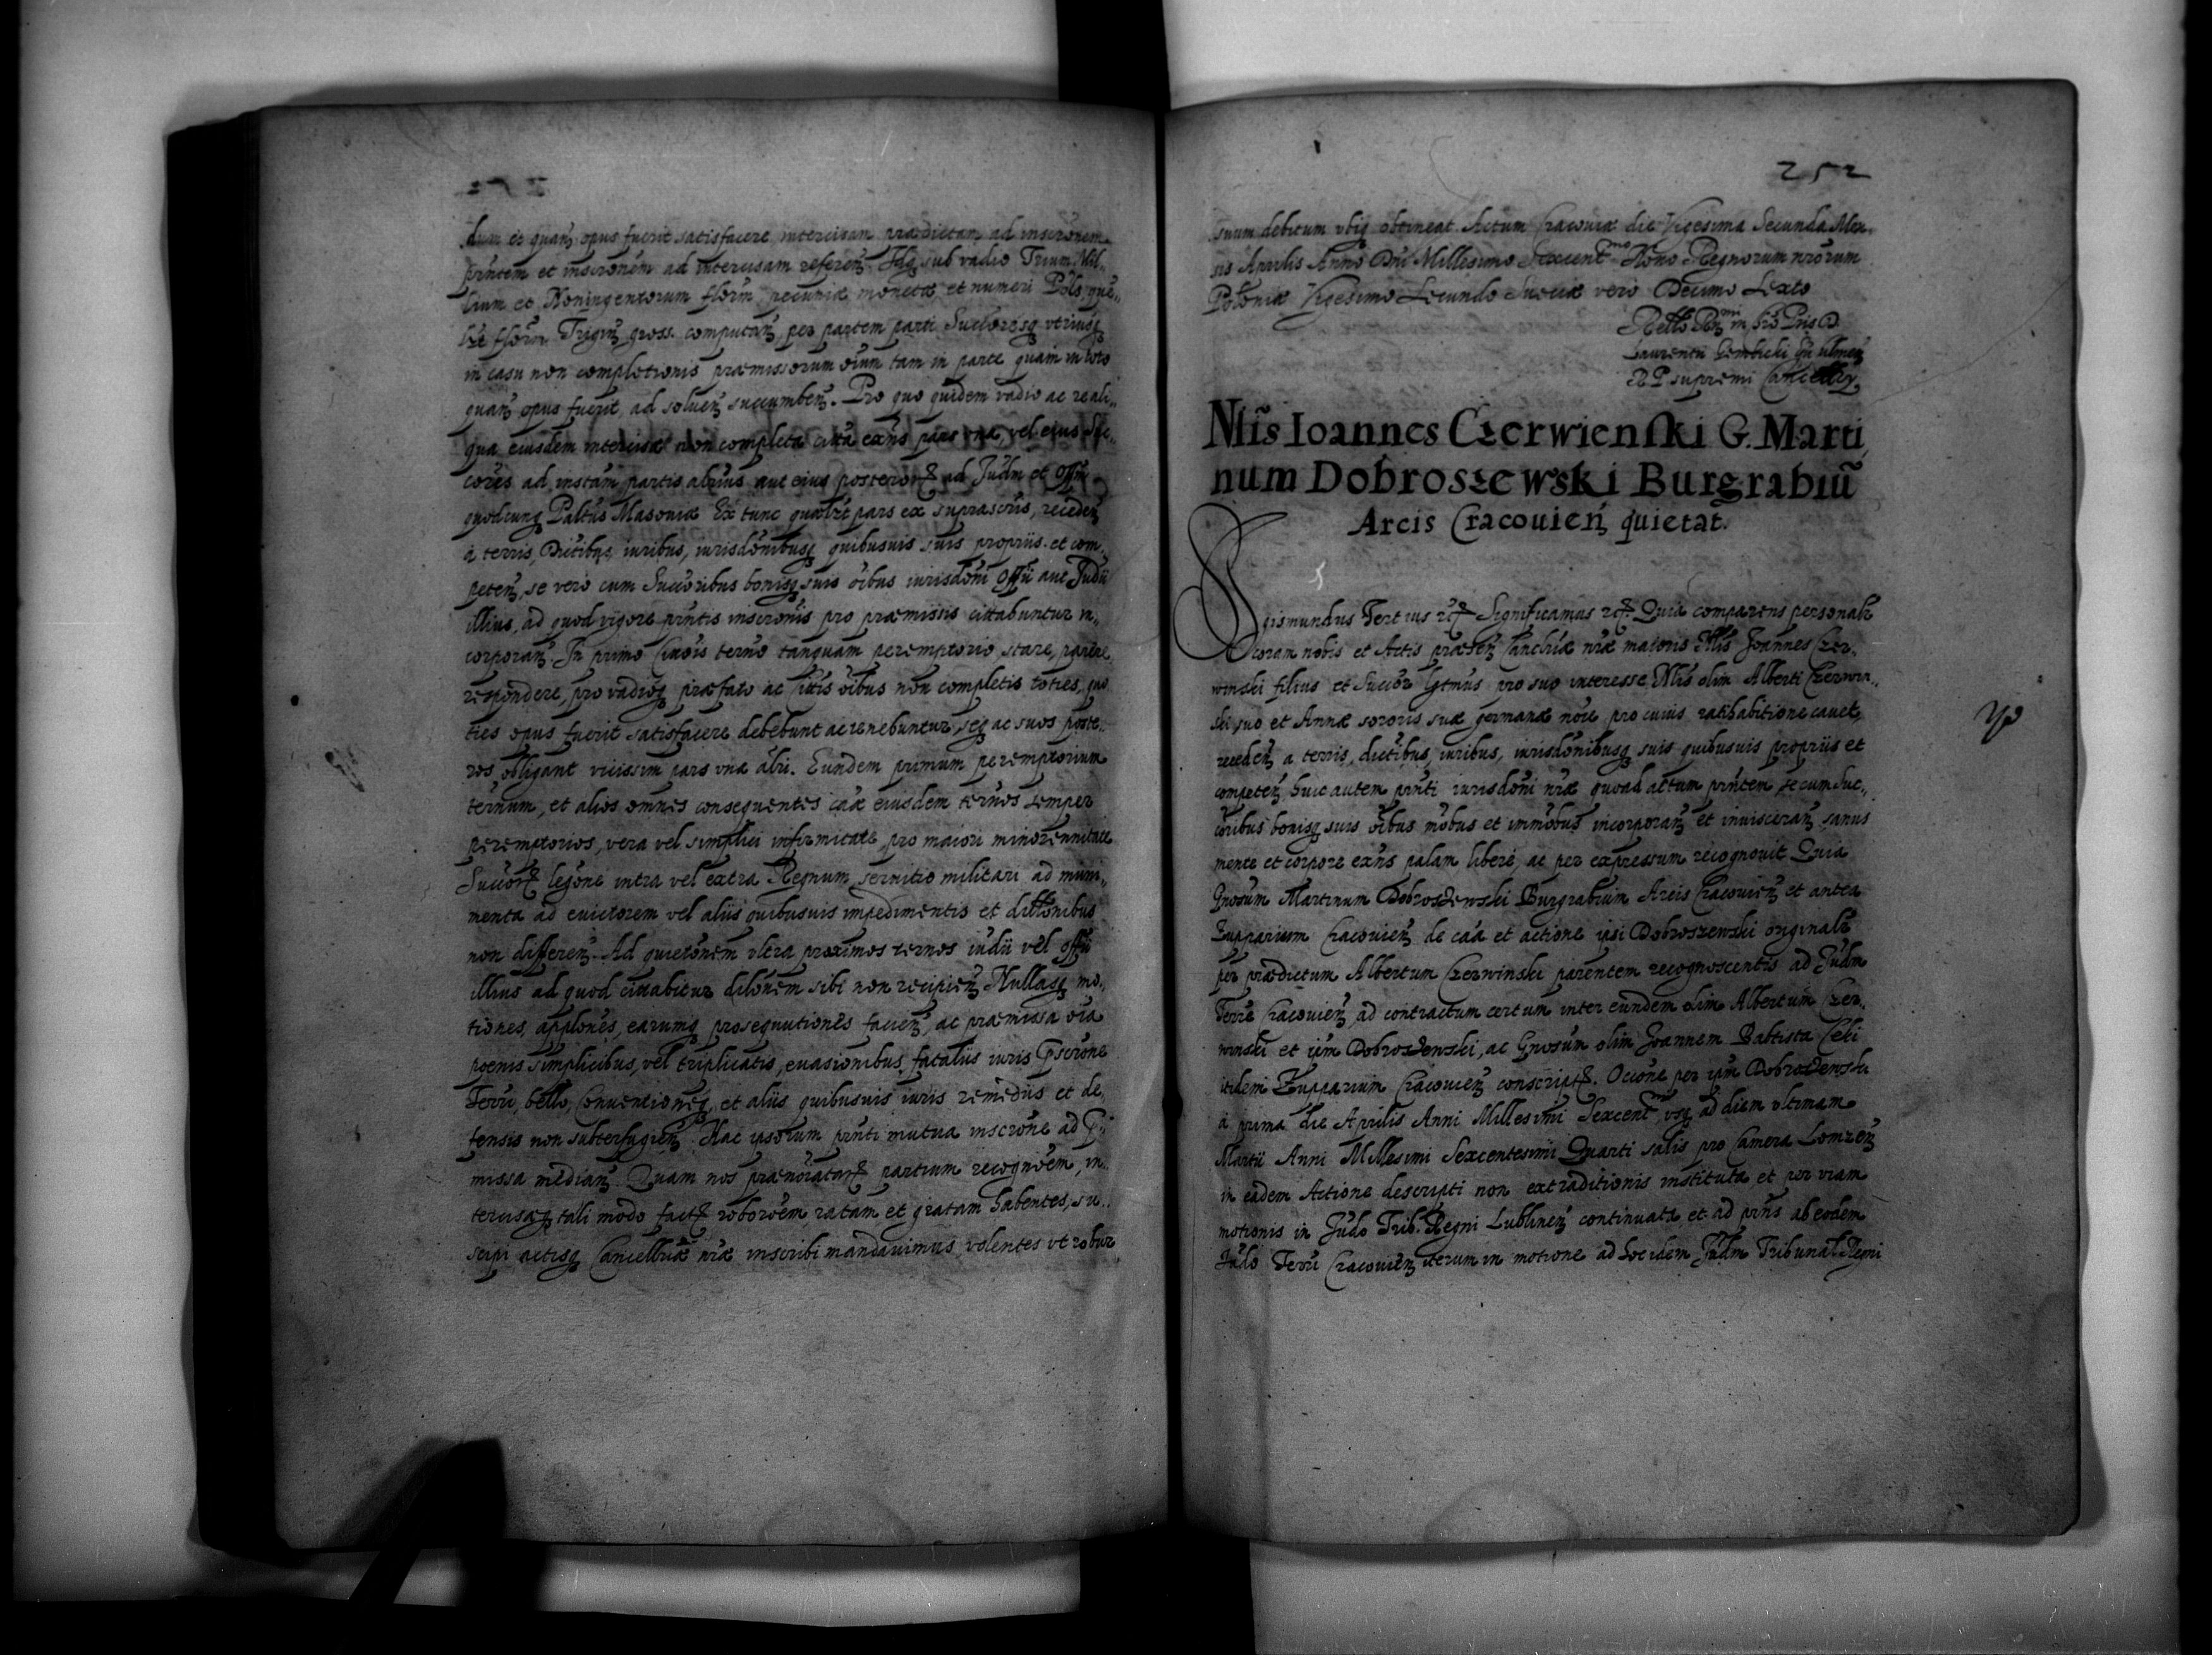 dum et quan opus fuerit satisfacere intercisam prædictam ad inscrõnem
pñtem et inscrõnem ad intercisam referen. Idq sub vadio Trium Mil,,
lium et Noningentorum florn pecuniæ monetæ et numeri Pols, que,,
lzt florn Trigin gross. computan per partem parti Succoresq utriusq
in casu non completionis præmissorum õium tam in parte quam in toto
quan opus fuerit, ad soluen succumben. Pro quo quidem vadio ac reali,,
qua eiusdem intercisæ non completa citta exñs pars una, vel eius Suc,,
cores ad instam partis alrius aut eius posteror ad Judm et Offm
quodcunq Paltus Masoniæ Ex tunc quælzt pars ex suprascris, receden
à terris, Ditibqs iuribus, iurisdõnibusq quibusuis suis propriis et com,
peten, se vero cum Succoribus bonisq suis õibus iurisdõni Offii aut Judii
illius, ad quod vigore pñtis inscrõnis pro præmissis cittabuntur in,,
corporan In primo Citãois termo tanquam peremptorio stare, parere
respondere, pro vadioq præfato ac ittis õibus non completis toties, quo
ties opus fuerit satisfacere debebunt ac tenebuntur, seq ac suos poste,,
ros obligant vicissim pars vna altri. Eundem primum peremptorium
ternum, et alios omnes consequentes caæ eiusdem ternos semper
peremptorios, vera vel simplici infirmitate pro maiori minorennitate
Succor legõne intra vel extra Regnum seruitio militari ad muni,,
menta ad euictorem vel aliis quibusuis impedimentis et dillõnibus
non differen. Ad quietõnem vltra proximos ternos iudii vel offii
illius ad quod cittabitur dilõnem sibi non recipien Nullasq mo,
tiones, applões, earumq prosequutiones facien, ac præmissa õia
poenis simplicibus, vel triplicatis, euasionibus, fataliis iuris Pscrõne
Terri, bello, Conuentioneq, et aliis quibusuis iuris remediis et de,
fensis non subterfugien. Hac ipsorum pñti mutua inscrõne ad P,,
missa median. Quam nos prænõiatar partium recognõem, in,,
tercisaq tali modo fact roborõem, ratam et gratam habentes, su,,
scipi actisq Cancellriæ nræ inscribi mandauimus, volentes vt robur
252
suum debitum vbiq obtineat. Actum Cracouiæ die Vigesima Secunda Men,
sis Aprilis Anno Dñi Millesimo Sexcentmo Nono Regnorum nrõrum
Poloniæ Vigesimo Secundo Sueciæ vero Decimo Sexto
Laurentii Gembicki
R P supremi Cancellrii
Nlis Ioannes Czerwienski G. Marti,
num Dobroszewski Burgrabiũ
Arcis Cracouien quietat.
Sigismundus Tertius etc Significamus etc Quia comparens personalr
coram nobis et Actis præsen Canclriæ nræ maioris Nlis Joannes Czer,
winski filius et Succor Lgtmus pro suo interesse Nlis olim Alberti Czerwin,,
ski, suo et Annæ sororis suæ germanæ nõie pro cuius ratihabitione cauet,
receden a terris, dictibus, iuribus, iurisdõnibusq suis quibusuis propriis et
competen huic autem pñti iurisdõni nræ quoad actum pñtem se cum Suc,,
coribus bonisq suis õibus mobus et immobus incorporan et inuisceran sanus
mente et corpore exñs palam liberè, ac per expressum recognouit Quia
Gnosum Martinum Dobroszewski Burgrabium Arcis Cracouien et antea
Zupparium Cracouien de caa et actione ipsi Dobroszewski originalr
per prædictum Albertum Czerwinski parentem recognoscentis ad Judm
Terre Cracouien ad contractum certum inter eundem olim Albertum Czer,,
winski et ipm Dobroszewski, ac Gnosum olim Joannem Babtista Ceki
itidem Zupparium Cracouien conscript. Occõne per ipm Dobroszenski
à prima die Aprilis Anni Millesimi Sexcentmi vsq ad diem vltimam
Martii Anni Millesimi Sexcentesimi Quarti salis pro Camera Lomzen
in eadem Actione descripti non extraditionis instituta et per viam
motionis in Judo Trib. Regni Lublinen continuata et ad pñs ab eodem
Judo Terri Cracouien iterum in motione ad hocidem Judm Tribunal. Regni